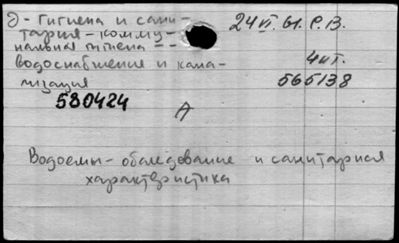 Э - Гигиена и сани-
тария - комму-
нальная гигиена --
водоснабжение и кана-
лизация
24 VI. 61. Р.В.
4 шт.
565138
580424
А
Водоемы - обследование и санитарная
характеристика